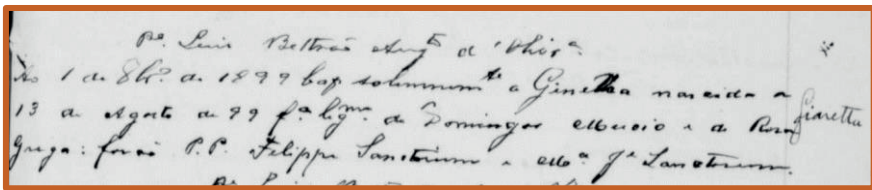 Pe. Luis Beltrão Augto d'Olivra.
Ao 1 de 8bro. de 1899 bap solemnemte a Ginetta nascida a
13 de Agosto de 99 fa. ligma. de Domingos Mucio e de Rosa
Grega: forão P.P. Filippe Sanctorum e Ma. Je Sanctorum.
Giaretta